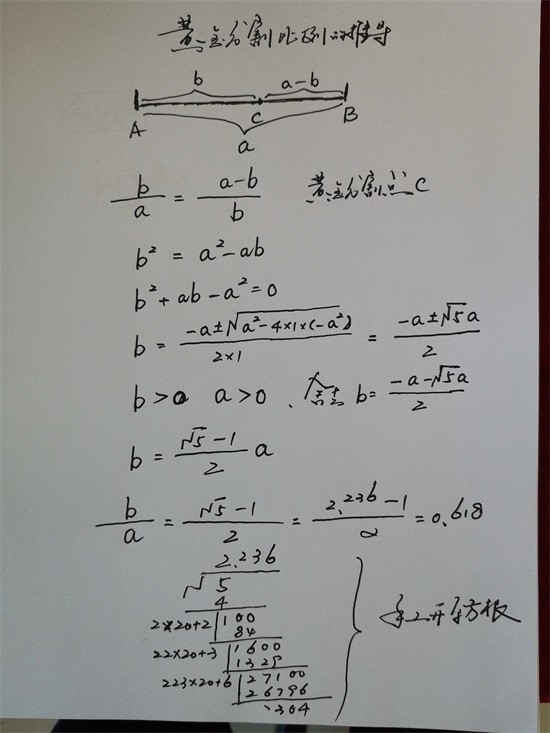 黄金分割比例的推导
b a-b
A C B
a
b/a = (a-b)/b 黄金分割点C
b² = a²-ab
b²+ab-a²=0
b = (-a±√(a²-4×1×(-a²)))/(2×1) = (-a±√5a)/2
b>0 a>0、舍去 b= (-a-√5a)/2
b = (√5-1)/2 a
b/a = (√5-1)/2 = (2.236-1)/2 =0.618
2.236
√5
4
2×20+2 100
84
22×20+3 1600
1329
223×20+6 27100
26796
304
手工开平方根